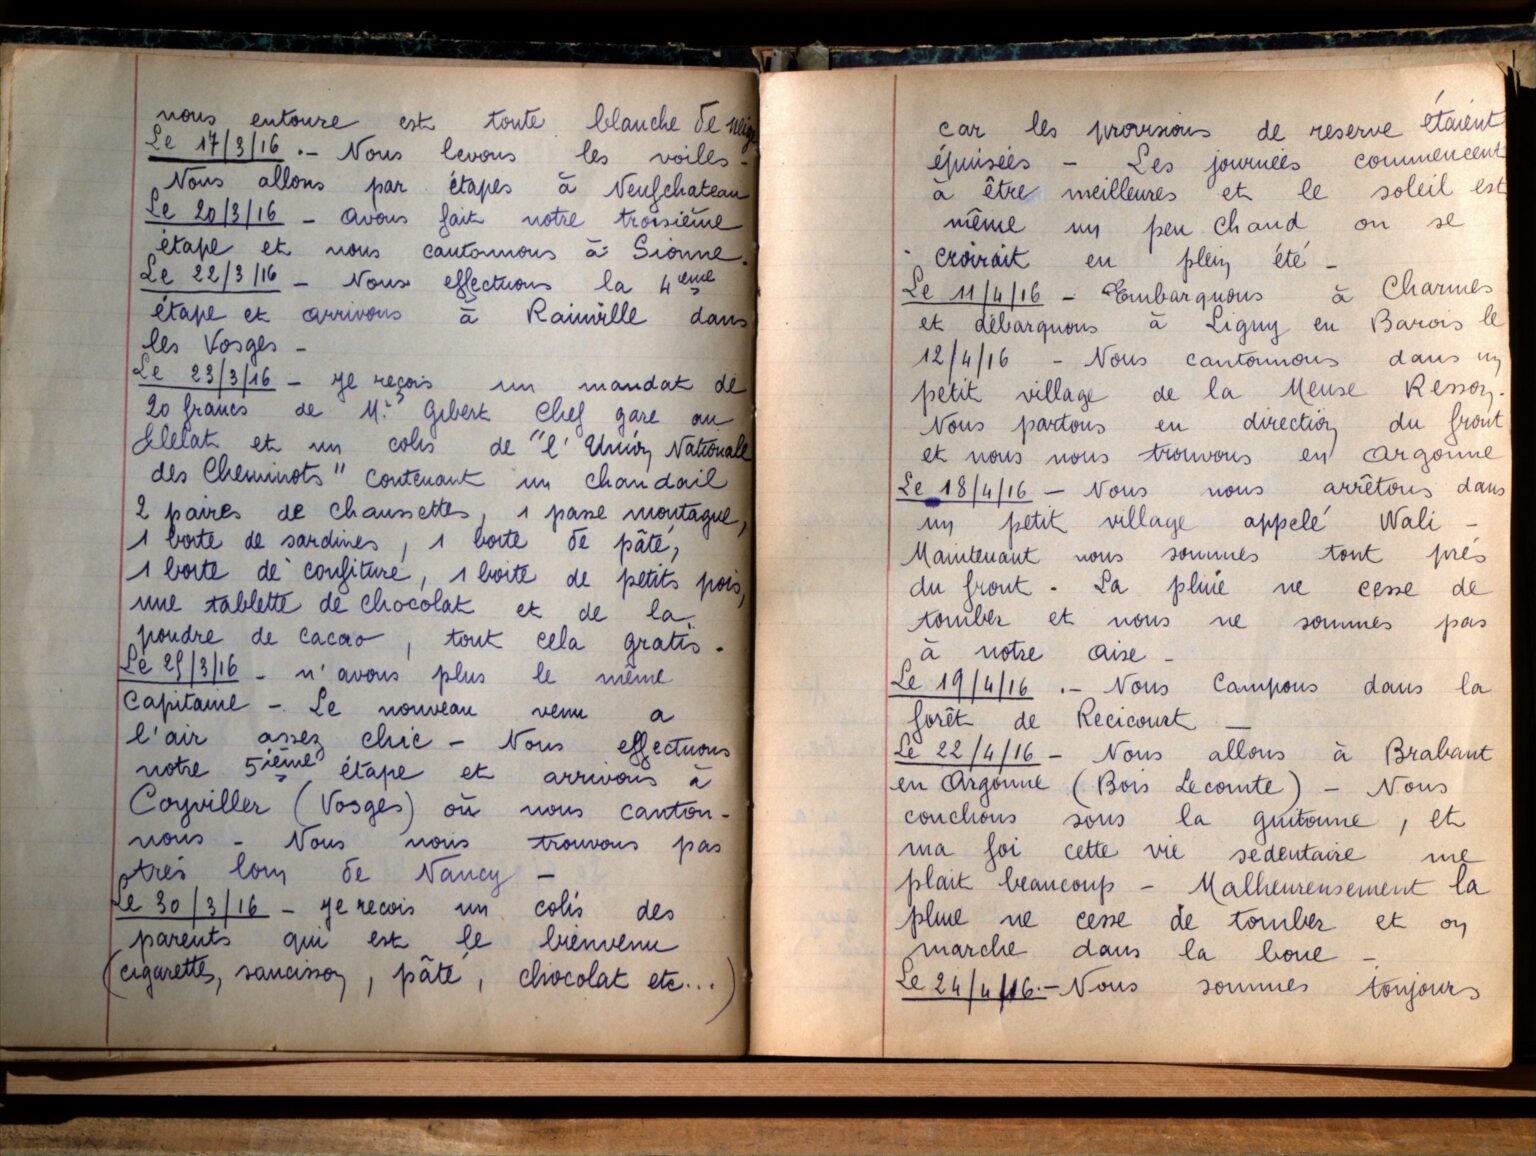 nous entoure est toute blanche de neige
Le 17/3/16 .- Nous levons les voiles -
Nous allons par étapes à Neufchateau
Le 20/3/16 - Avons fait notre troisième
étape et nous cantonnons à Sionne.
Le 22/3/16 - Nous effectuons la 4eme
étape et arrivons à Rainville dans
les Vosges -
Le 23/3/16 - Je reçois un mandat de
20 francs de Mr Gibert Chef gare au
et un colis de "l'Union Nationale
des Cheminots" contenant un chandail
2 paires de chaussettes, 1 passe montagne,
1 boite de sardines, 1 boite de pâté,
1 boite de confiture, 1 boite de petits pois,
une tablette de chocolat et de la
poudre de cacao, tout cela gratis.
Le 25/3/16 - n'avons plus le même
Capitaine - Le nouveau venu a
l'air assez chic - Nous effectuons
notre 5ième étape et arrivons à
Coyviller (Vosges) où nous canton-
nons - Nous nous trouvons pas
très loin de Nancy -
Le 30/3/16 - Je recois un colis des
parents qui est le bienvenu
(cigarettes, saucisson, pâté, chocolat etc...)
car les provisions de reserve étaient
épuisées - Les journées commencent
à être meilleures et le soleil est
même un peu chaud on se
croirait en plein été -
Le 11/4/16 - Embarquons à Charmes
et débarquons à Ligny en Barois le
12/4/16 - Nous cantonnons dans un
petit village de la Meuse Resson.
Nous partons en direction du front
et nous nous trouvons en Argonne
Le 18/4/16 - Nous nous arrêtons dans
un petit village appelé Wali -
Maintenant nous sommes tout près
du front. La pluie ne cesse de
tomber et nous ne sommes pas
à notre aise -
Le 19/4/16 .- Nous Campons dans la
forêt de Recicourt -
Le 22/4/16 - Nous allons à Brabant
en Argonne (Bois Lecomte) - Nous
couchons sous la guitoune, et
ma foi cette vie sedentaire me
plait beaucoup - Malheureusement la
pluie ne cesse de tomber et on
marche dans la boue -
Le 24/4/16.- Nous sommes toujours